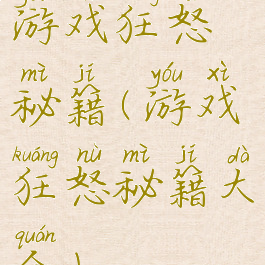 游戏狂怒
mì jí yóu xì
秘籍(游戏
kuáng nù mì jí dà
狂怒秘籍大
quán